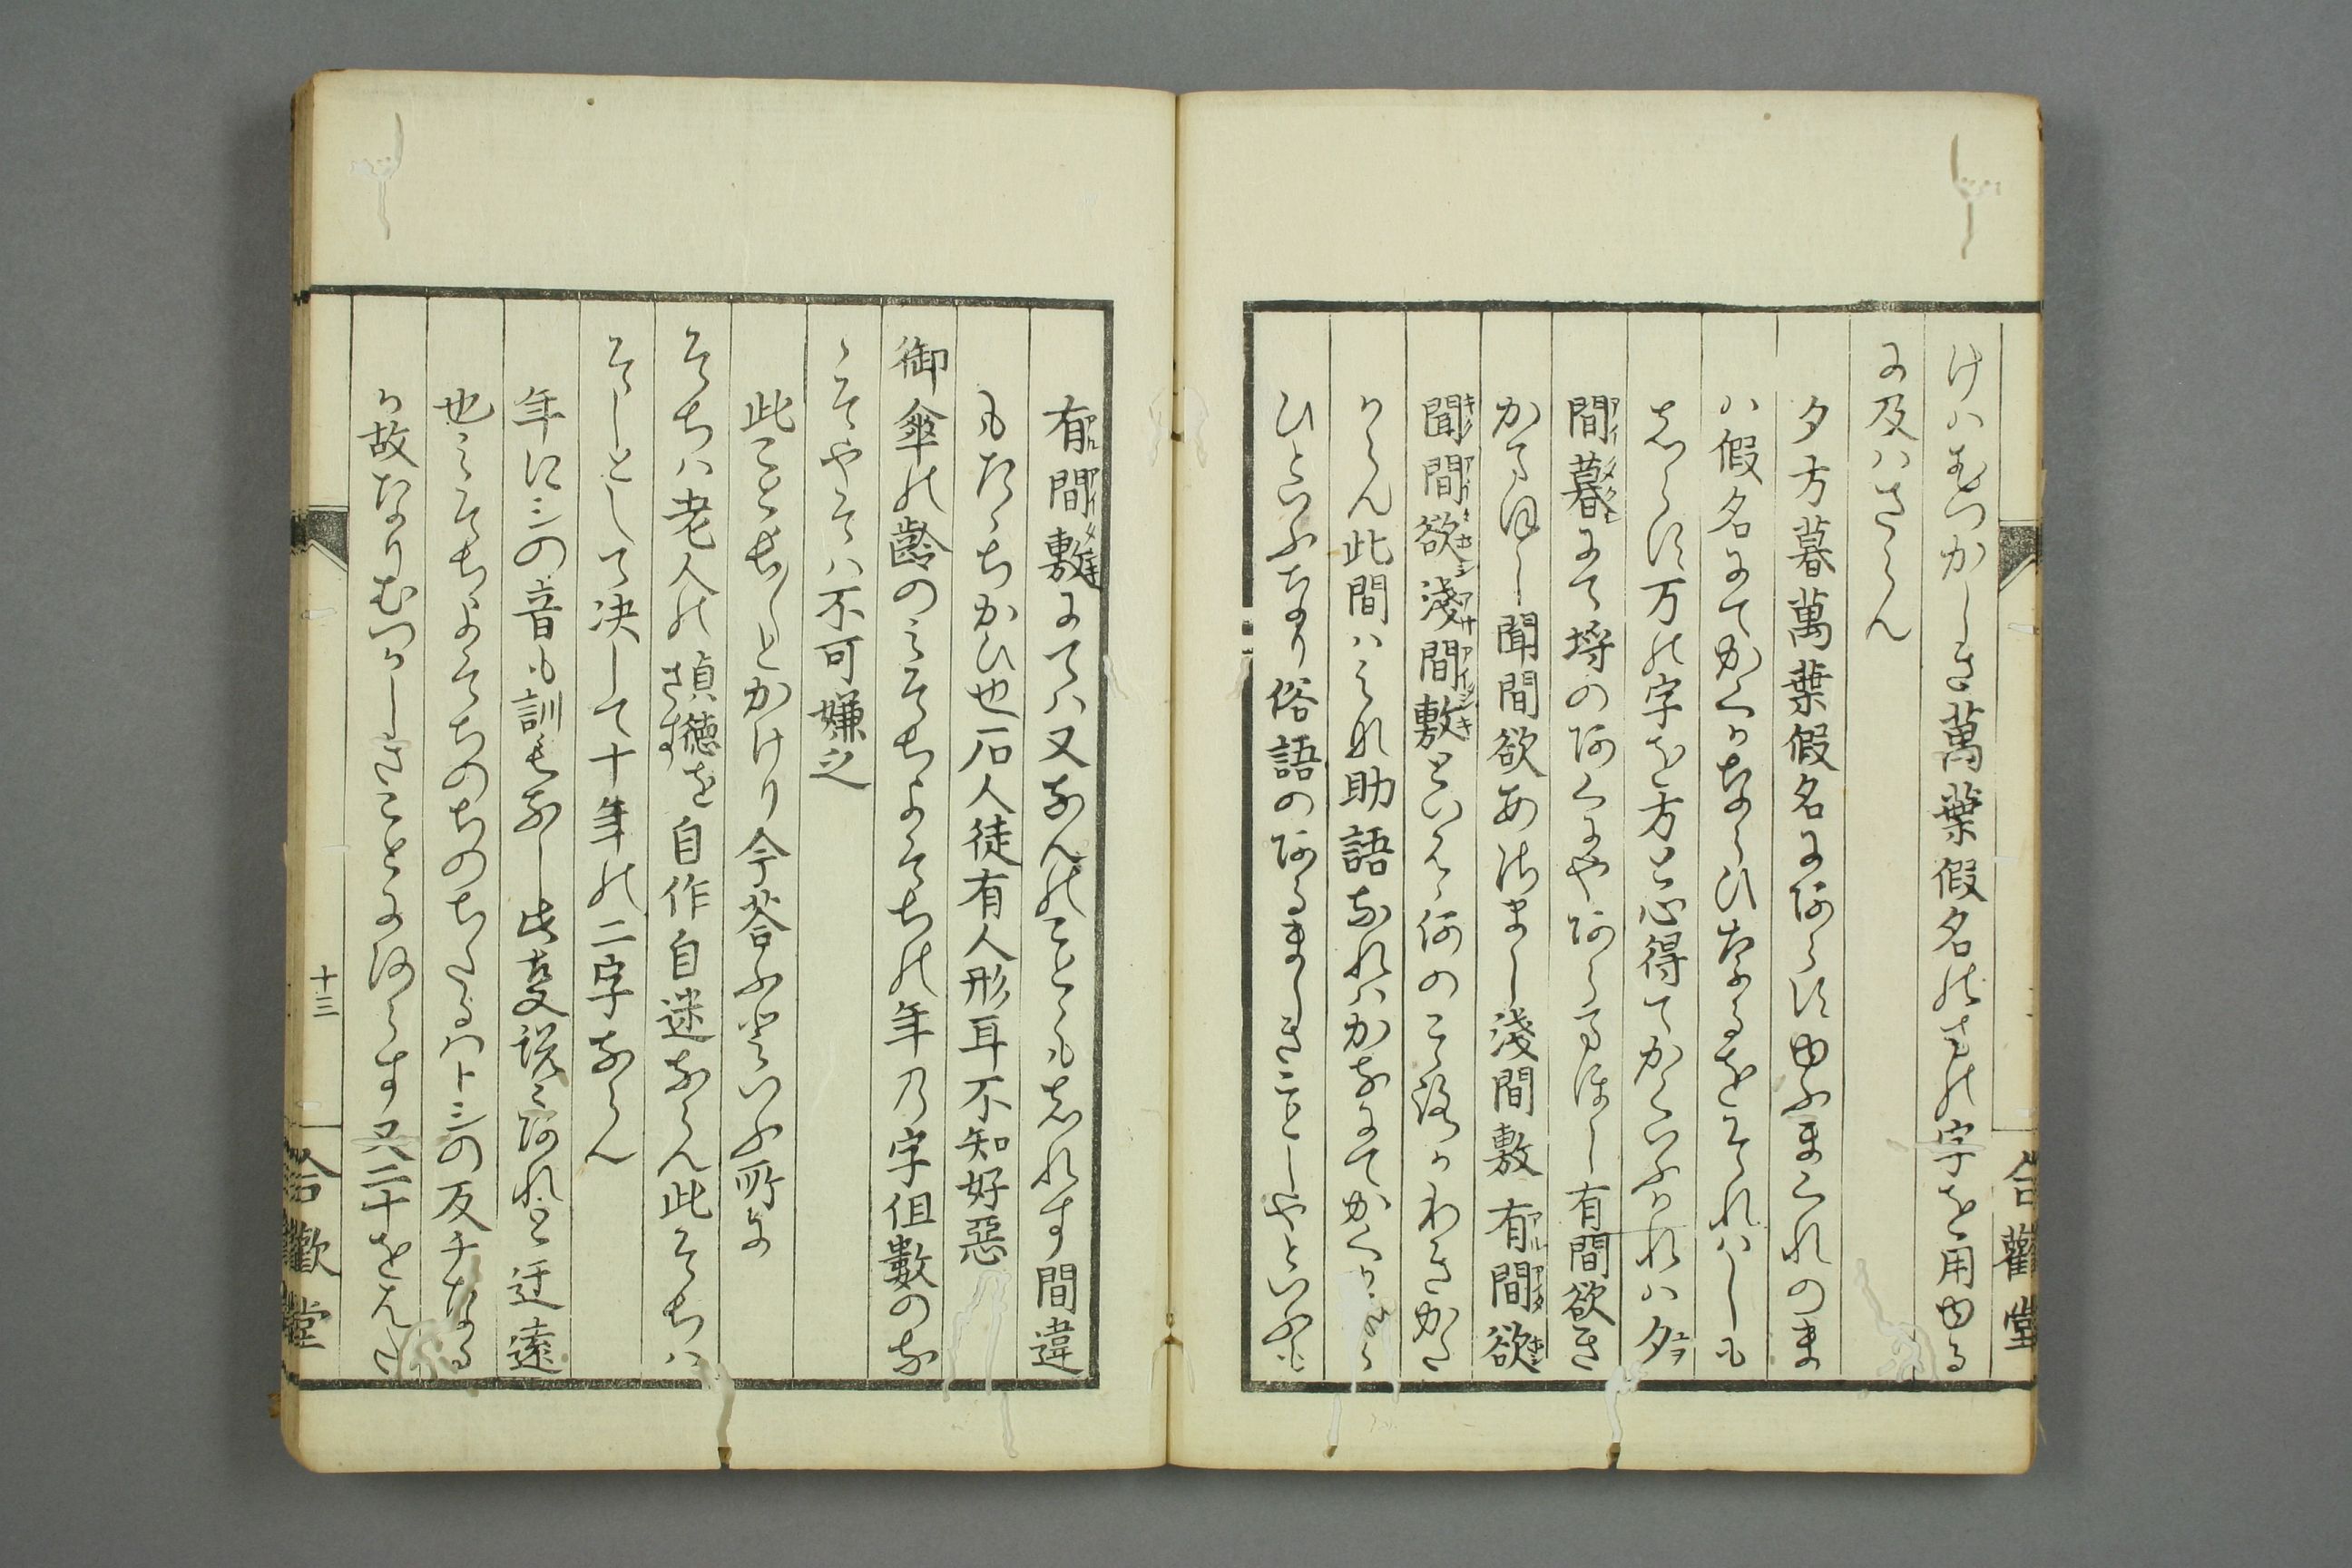 けハむつかしき萬葉假名のさの字を用ゆる
に及ハさらん
夕方暮萬葉假名にあらす由ふまくれのま
ハ假名にてかくかならひなるをそれハしも
しらす万の字を方と心得てかくいふかれハ夕
間暮にて埒のあくにやあらまほし有間欲き
かまほし聞間欲あらまし淺間敷有間欲
聞間欲淺間敷といへる何のこゝろかわきかた
からん此間ハみれ助語なれハかなにてかくか
ひといふなり俗語のあるましきことしやといふも
有間敷にてハ又なんのことゝもしれす間違
もたゝちかひ也石人徒有人形耳不知好惡
御傘の齡のみそちよそちの年乃字伹數のな
ゝそやそハ不可嫌之
此ことちしとかけり今荅ふといふ所に
そちハ老人の貞徳を自作自迷ならん此そちハ
そしとして决して十年の二字ならん
年にミの音も訓もなし此支説々あれと迂遠
也みそちよそちのちのちたるハトミの反チなる
か故なりむつかしきことにあらす又二十をはた
十三
合歡堂
合歡堂